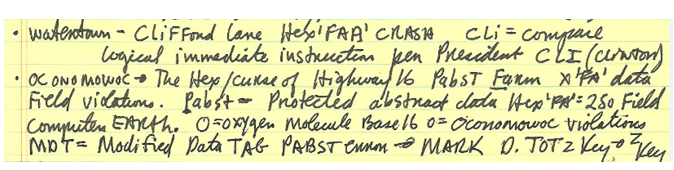 • Watertown - Clifford Lane Hex'FAA' CRASH CLi = compare
logical immediate instruction per President CLI (clinton)
• OCONOMOWOC → The Hex/curse of Highway 16 Pabst Farm X'FA' data
Field violations. Pabst = Protected abstract data Hex'FA' = 250 Field
Computer EARth. O = oxygen Molecule Base 16 O = Oconomowoc violations
MDT = Modified Data TAG PABST ennon → MARK D. TOTZ Key → Z Key